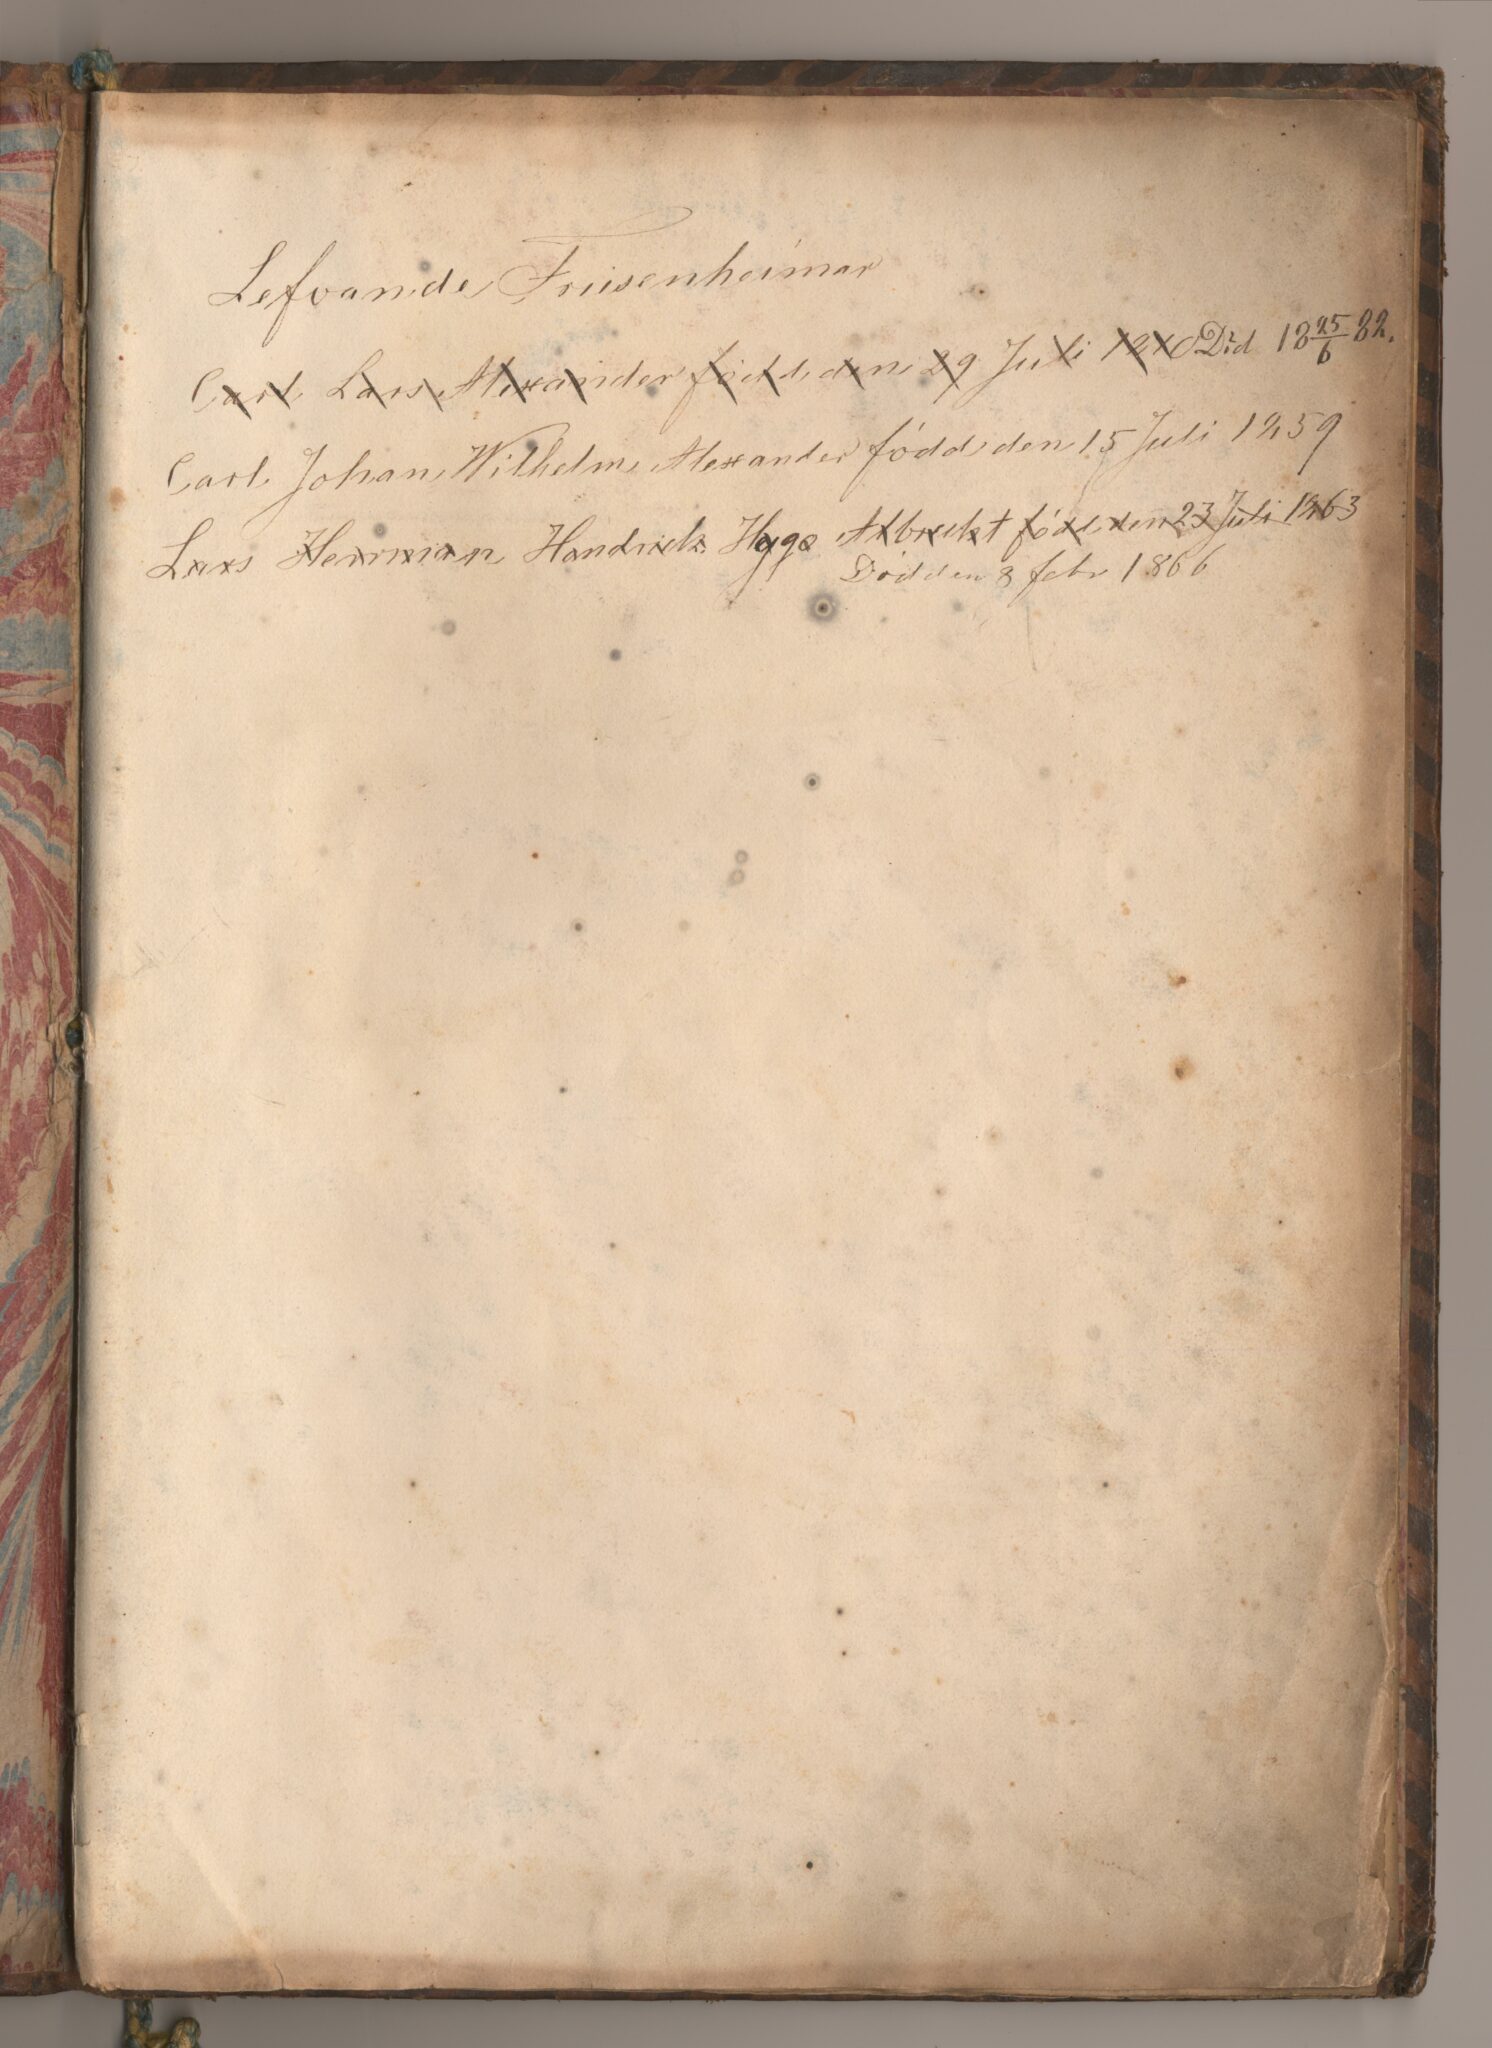 Lefvande Friisenheimar
Carl Lars Alexander född den 29 Juli 1810 Död 18 25/6 82.
Carl Johan Wilhelm Alexander född den 15 Juli 1859
Lars Herrman Handrick Hugo Albrekt född den 23 Juli 1863
Död den 8 febr 1866